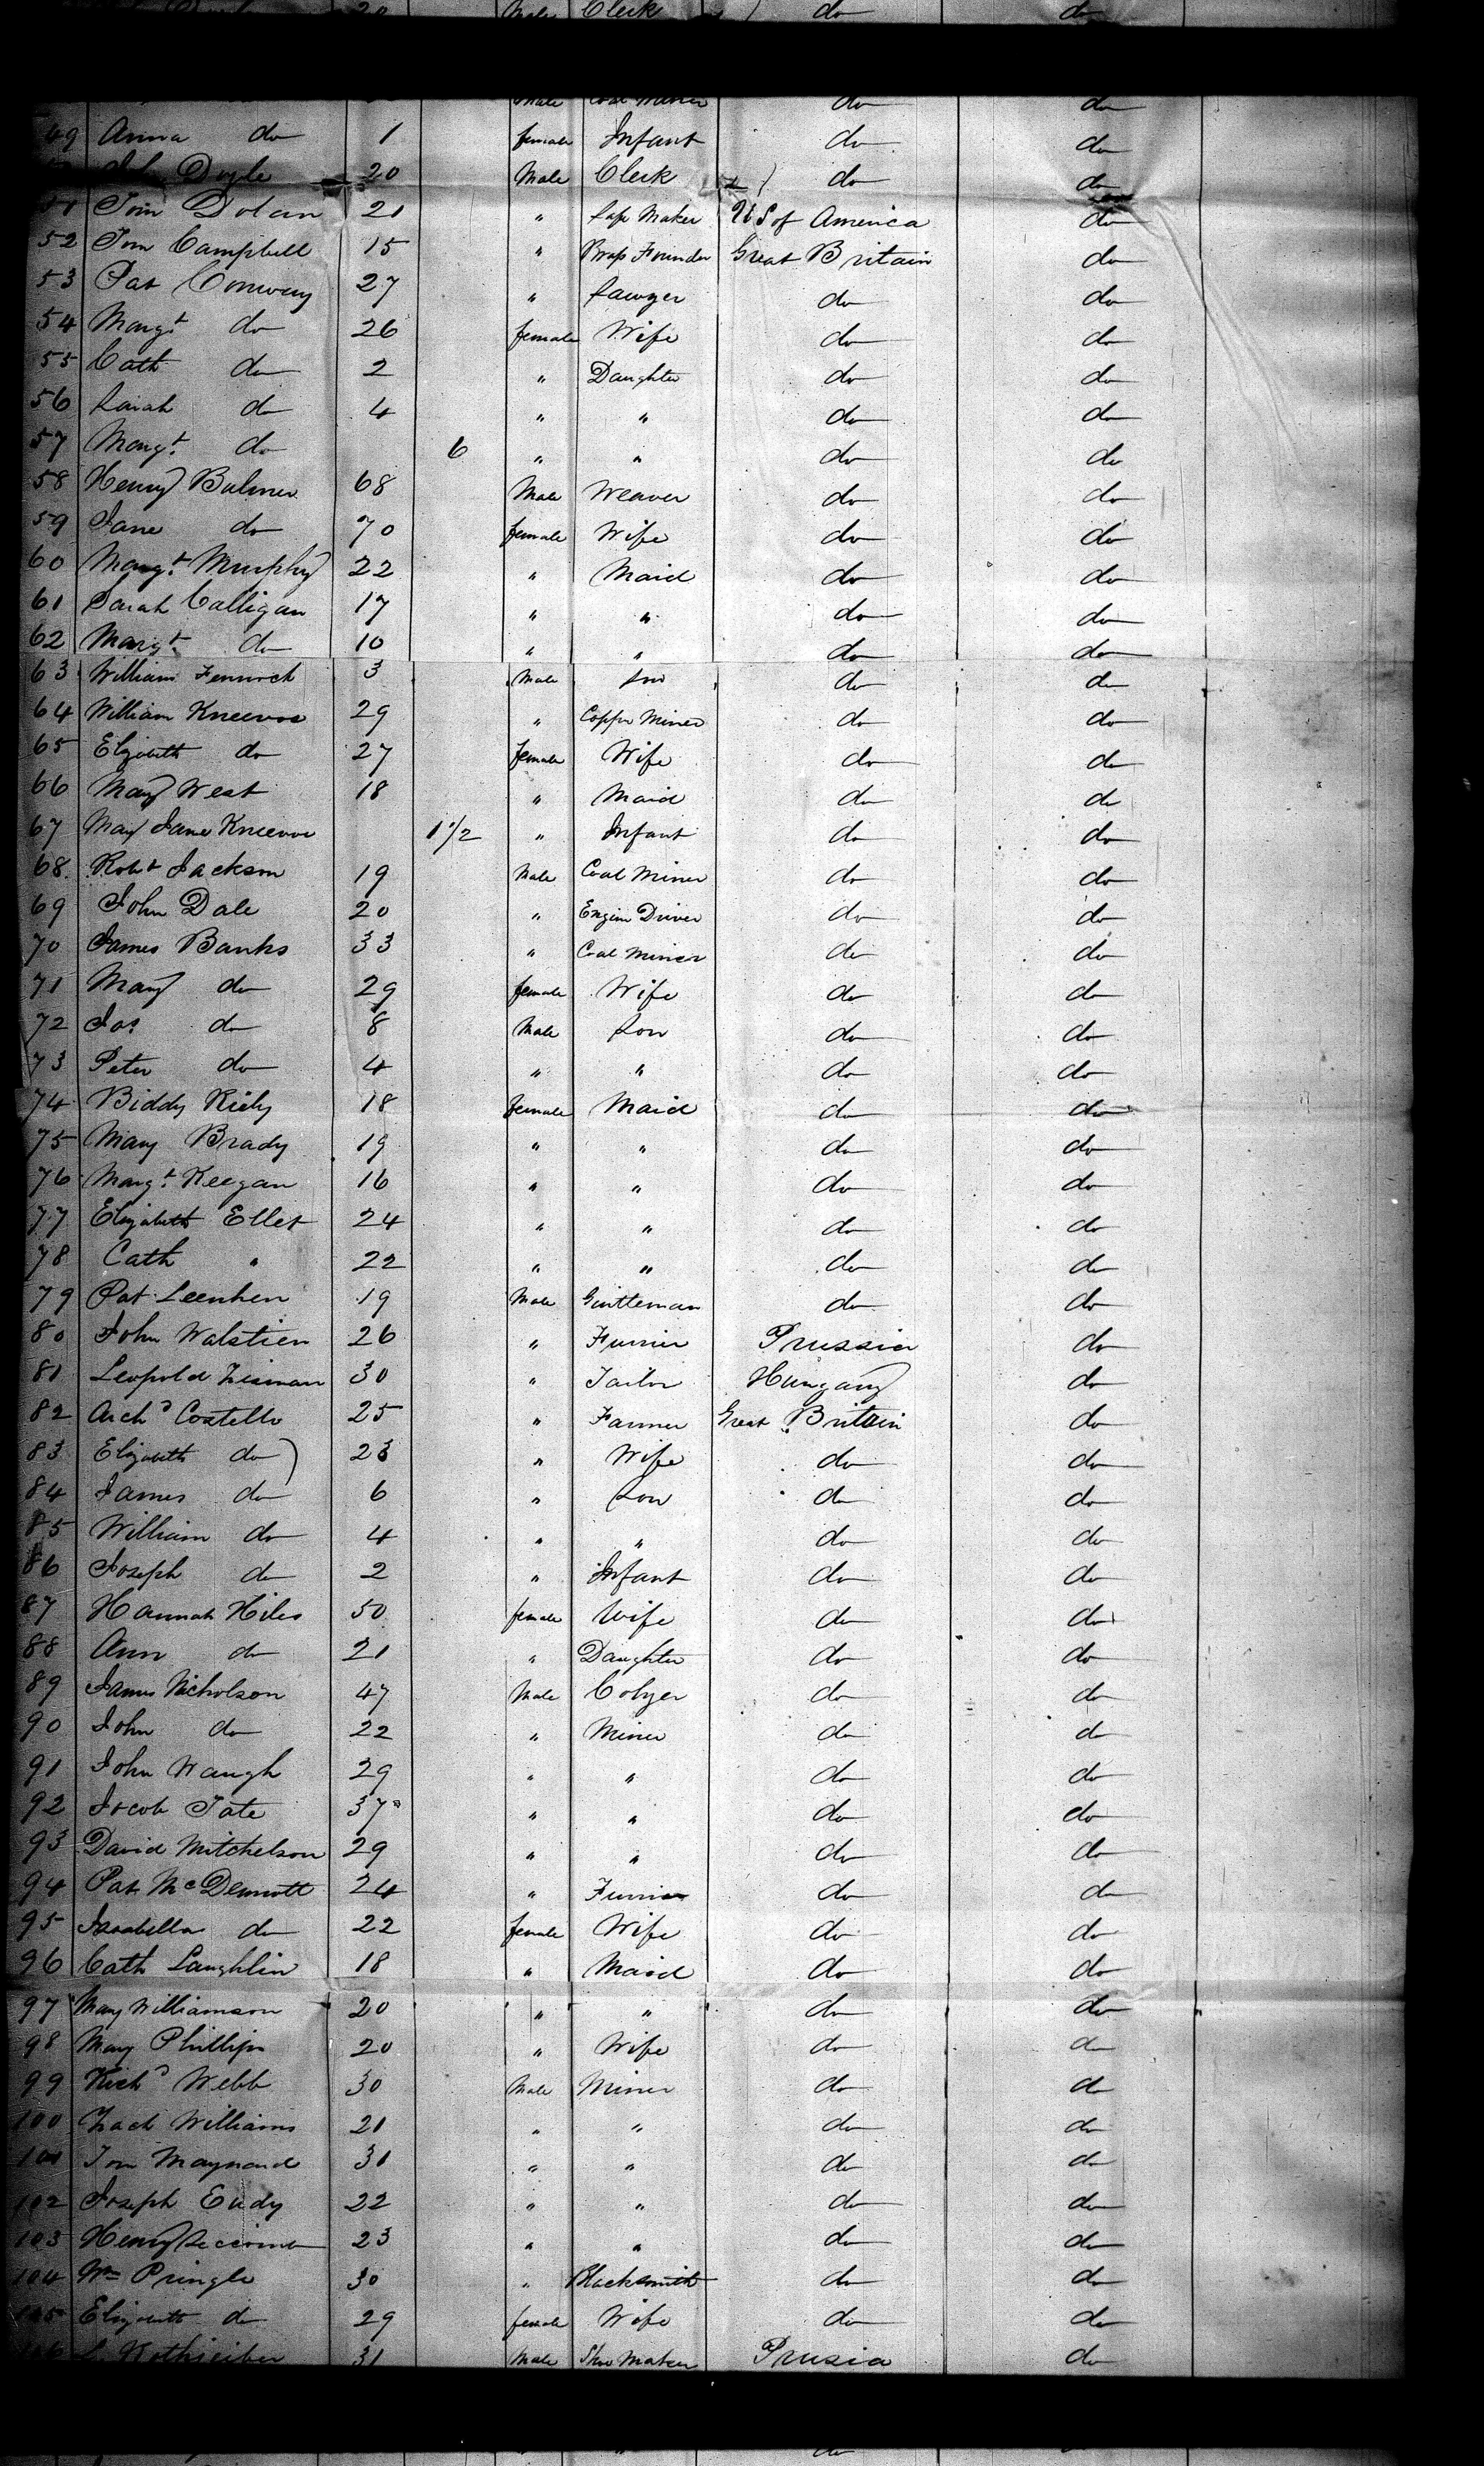 20 Male Clerk do do
Male Coal Miner do do
49 Anna do 1 female Infant do do
Doyle 20 Male Clerk do do
51 Tom Dolan 21 " Maker US of America do
52 Tom Campbell 15 " Brass Founder Great Britain do
53 Pat Conway 27 " Sawyer do do
54 Margt do 26 female Wife do do
55 Cath do 2 " Daughter do do
56 Sarah do 4 " " do do
57 Margt. do 6 " " do do
58 Henry Bulmer 68 Male Weaver do do
59 Jane do 70 female Wife do do
60 Margt. Murphy 22 " Maid do do
61 Sarah Calligan 17 " " do do
62 Margt. do 10 " " do do
63 William Fenwick 3 Male Son do do
64 William 29 " Copper Miner do do
65 Elizabeth do 27 female Wife do do
66 Mary West 18 " Maid do do
67 Mary Jane 1 1/2 " Infant do do
68. Robt Jackson 19 Male Coal Miner do do
69 John Dale 20 " Engine Driver do do
70 James Banks 33 " Coal Miner do do
71 Mary do 29 female Wife do do
72 Jas do 8 Male Son do do
73 Peter do 4 " " do do
74 Biddy Riely 18 female Maid do do
75 Mary Brady 19 " " do do
76 Margt. Keegan 16 " " do do
77 Elizabeth Ellet 24 " " do do
78 Cath " 22 " " do do
79 Pat Leenhen 19 Male Gentleman do do
80 John Walstien 26 " Furrier Prussia do
81 Leopold 30 " Tailor Hungary do
82 Archd Costello 25 " Farmer Great Britain do
83 Elizabeth do 23 " Wife do do
84 James do 6 " Son do do
85 William do 4 " " do do
86 Joseph do 2 " Infant do do
87 Hannah Hiles 50 female Wife do do
88 Ann do 21 " Daughter do do
89 James Nicholson 47 Male Colyer do do
90 John do 22 " Miner do do
91 John Waugh 29 " " do do
92 Jacob Tate 37 " " do do
93 David Mitchelson 29 " " do do
94 Pat McDermott 24 " Furrier do do
95 Isabella do 22 female Wife do do
96 Cath Laughlin 18 " Maid do do
97 Mary Williamson 20 " " do do
98 Mary Phillips 20 " Wife do do
99 Richd Webb 30 Male Miner do do
100 Zach Williams 21 " " do do
101 Tom Maynard 31 " " do do
102 Joseph Eudy 22 " " do do
103 Henry Seccomb 23 " " do do
104 Wm Pringle 30 " Blacksmith do do
105 Elizabeth do 29 female Wife do do
106 31 Male Shoe Maker Prusia do
do